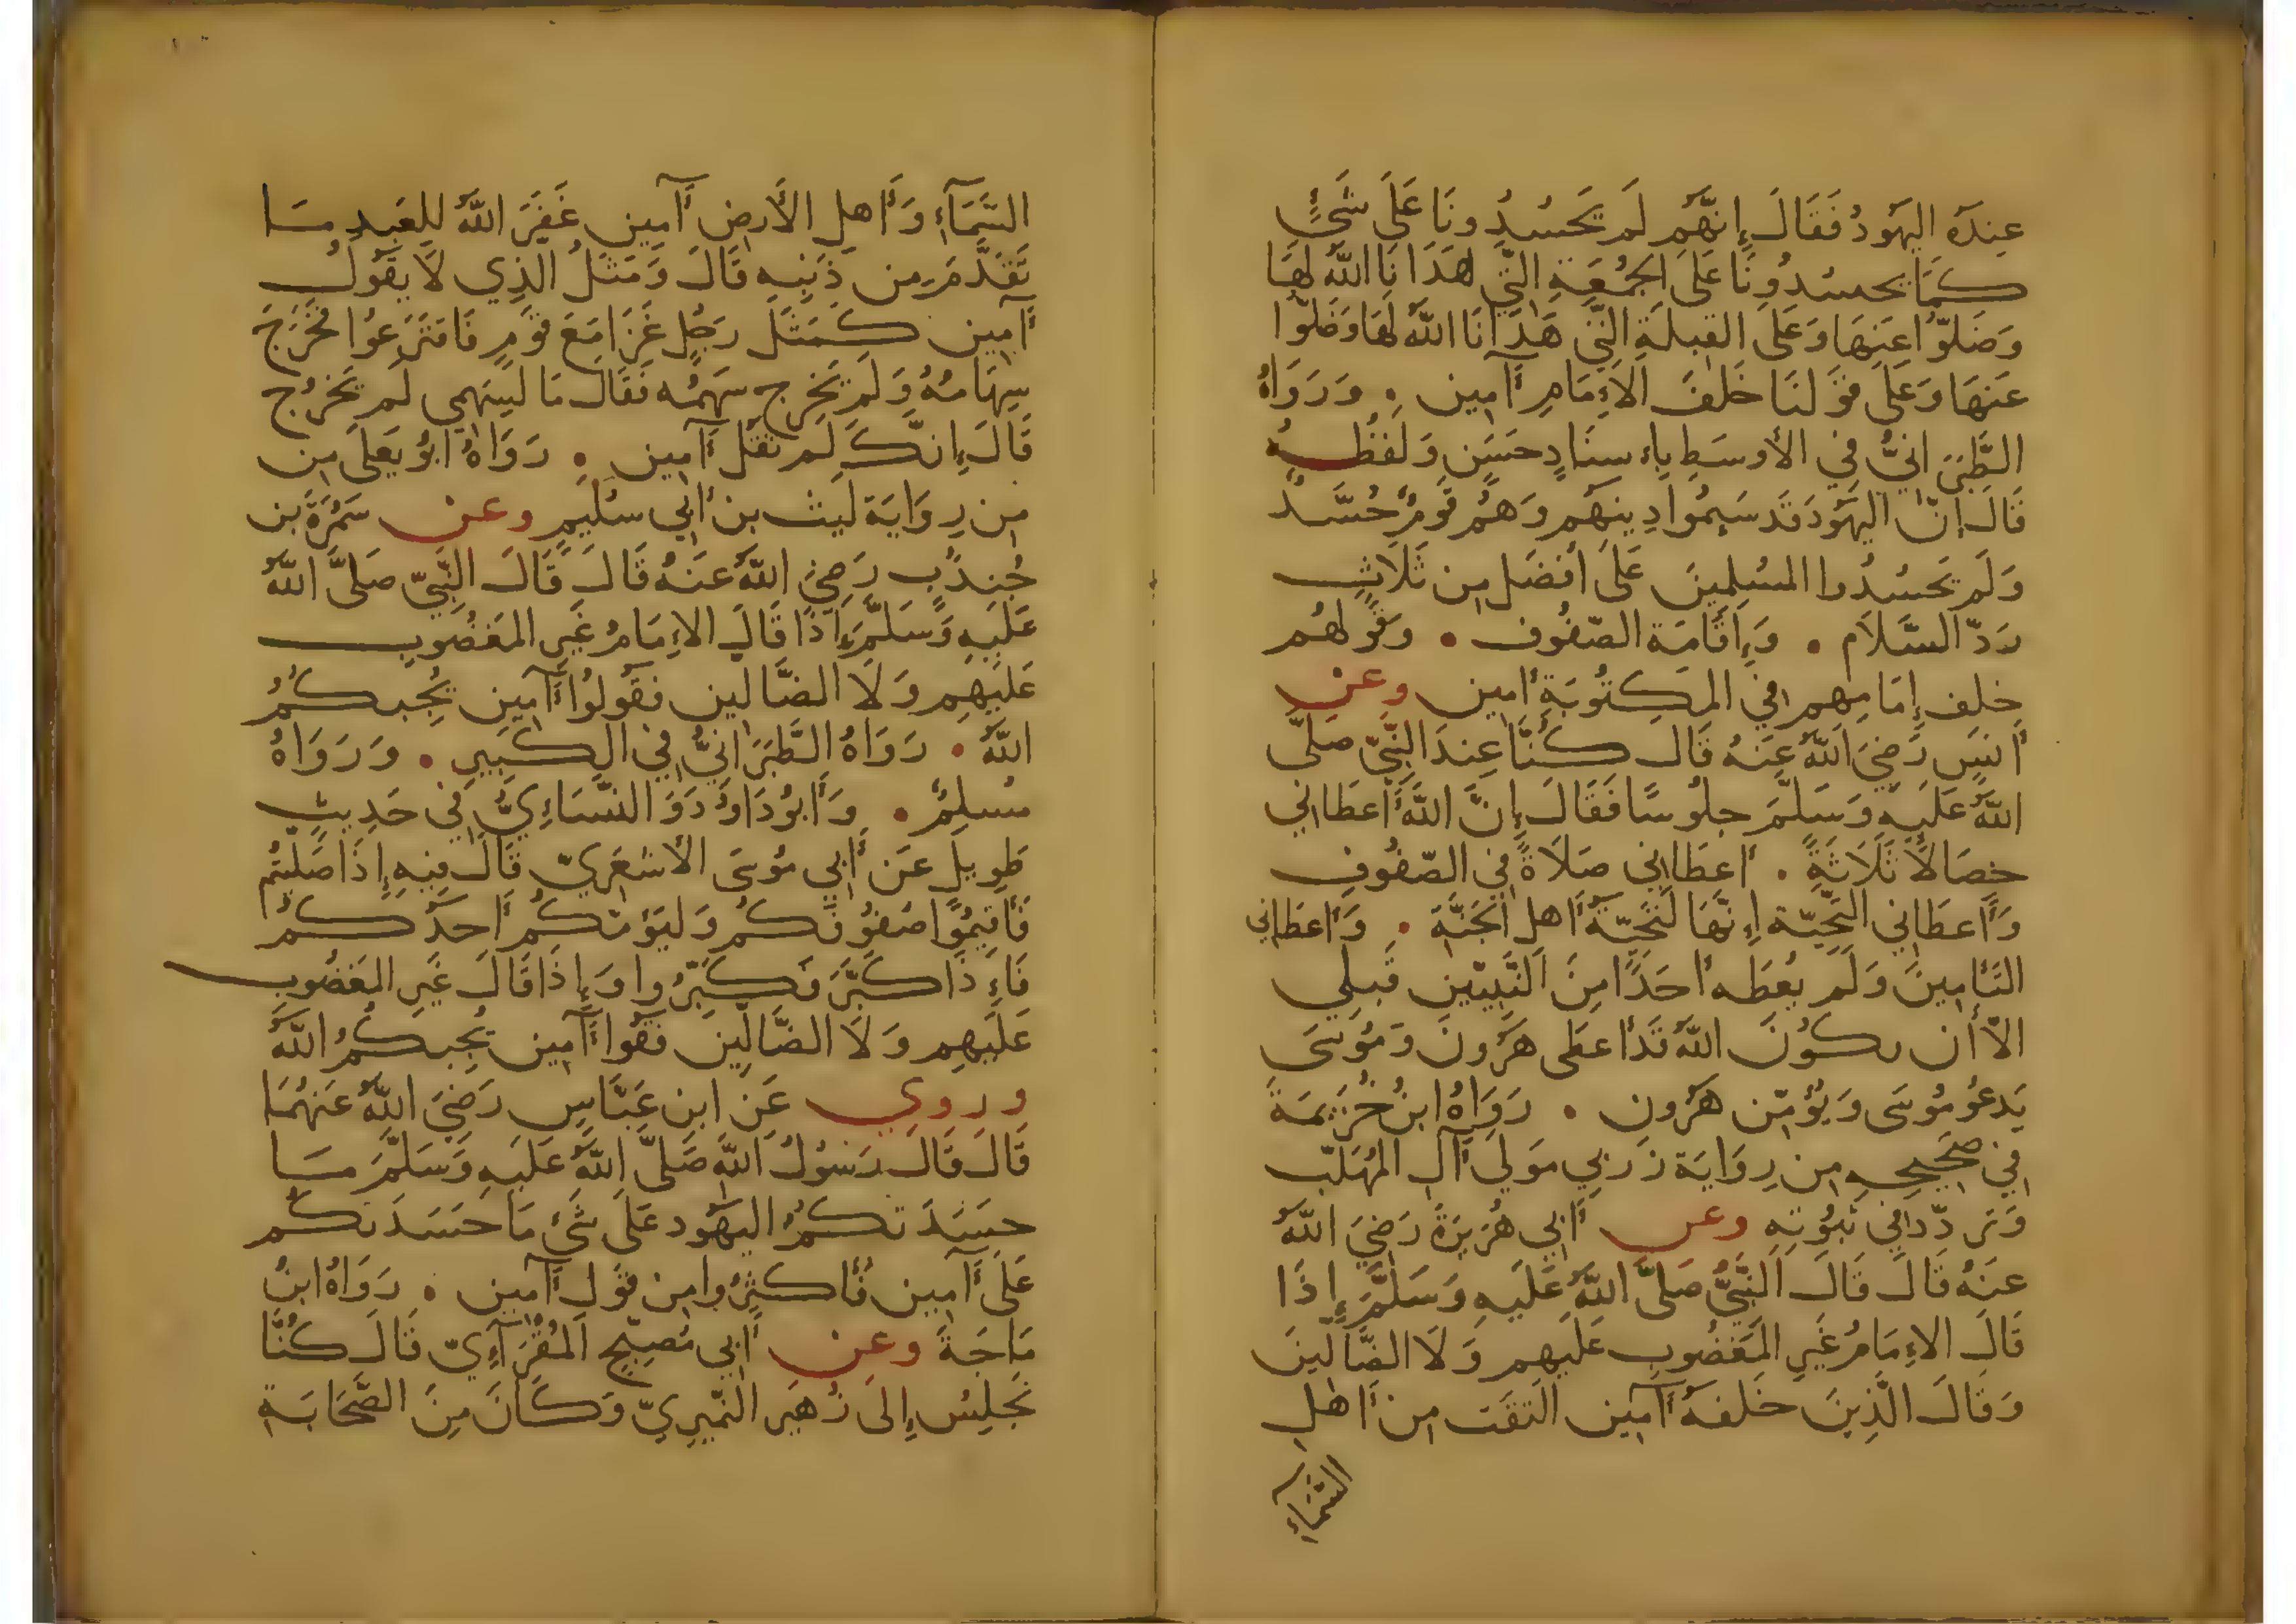 عِندَهُ اليَهُودُ فَقَالَ إِنَّهُم لَم يَحسُدُونَا عَلَى شَيءٍ
كَمَا يحسُدُونَا عَلَى الجُمُعَةِ الَّتِي هَدَانَا اللَّهُ لهَا
وَضَلّوُا عَنهَا وَعَلَى القِبلَةِ الَّتِي هَدَانَا اللَّهُ لهَا وَضَلُّوا
عَنهَا وَعَلَى قَولنَا خَلفَ الإِمَامِ آمِين . وَرَوَاهُ
الطَّبَرَانِيُّ فِي الأوسَطِ بِإِسنَادٍ حَسَن وَلَفظُه
قَالَ إنَّ اليَهُودَ قَد سَئِمُوا دِينَهُم وَهُم قَومٌ حُسَّدٌ
وَلَم يَحسُدُوا المسُلِمِينَ عَلَى أفضَل مِن ثَلَاثٍ
رَدّ السَّلَام . وَإِقَامَة الصّفُوف . وَقَولهُم
خلف إمَامِهِم فِي المَكتُوبَةِ أمين وعن
أنسٍ رَضِيَ اللَّهُ عَنهُ قَالَ كُنَّا عِندَ النَّبِيّ صَلَّى
اللَّهُ عَلَيهِ وَسَلَّمَ جلُوسًا فَقَالَ إِنَّ اللَّهَ أَعطَانِي
خِصَالًا ثَلَاثَةً . أعطَانِي صَلَاةً فِي الصّفُوفِ
وَأَعطَانِي التَّحِيّة إِنَّهَا لَتَحِيّةُ أَهلِ الجَنَّةِ . وَأَعطَانِي
التَأمِينَ وَلَم يُعطِه أحَدًا مِنَ النَّبِيّينَ قَبلِي
الّا أن يكُونَ اللَّهُ قَد أعطَى هَرُونَ وَمُوسَى
يَدعُو مُوسَى وَيُؤمّن هَرُون . رَوَاهُ ابنُ خُزَيمَةَ
فِي صَحِيحِهِ مِن رِوَايَة زَربِي مَولَى آلِ المُهَلّب
وَتَردّد فِي ثبُوتِهِ وعن أَبِي هُرَيرَةَ رَضِيَ اللَّهُ
عَنهُ قَالَ قَالَ النَّبِيُّ صَلَّى اللَّهُ عَلَيهِ وَسَلَّمَ إِذَا
قَالَ الإِمَامُ غَيرِ المَغضُوبِ عَلَيهِم وَلَا الضَّالِّينَ
وَقَالَ الَّذِينَ خَلفَهُ آمِين التَقَت مِن أَهلِ
السَّمَاءِ
السَّمَاءِ وَأَهلِ الأَرضِ آمِين غَفَرَ اللَّهُ لِلعَبدِ مَا
تَقَدَّمَ مِن ذَنبِهِ قَالَ وَمَثَلُ الَّذِي لَا يَقُولُ
آمِين كَمَثَل رَجُلٍ غَزَا مَعَ قَومٍ فَاقتَرَعُوا فخَرَجَ
سِهَامُهُ وَلَم يَخرج سَهمُه فَقَالَ مَا لِسَهمِي لَم يَخرُج
قَالَ إِنَّكَ لَم تَقُل آمِين . رَوَاهُ ابُو يَعلَى مِن
مِن رِوَايَة لَيث بن أبِي سُلَيمٍ وعن سَمُرَةَ بن
جُندُبٍ رَضِيَ اللَّهُ عَنهُ قَالَ قَالَ النَّبِيّ صَلَّى اللَّهُ
عَلَيهِ وَسَلَّمَ إِذَا قَالَ الإِمَامُ غَيرِ المَغضُوبِ
عَلَيهِم وَلَا الضَّالِين فَقُولُوا آمِين يُجِبكُمُ
اللَّهُ . رَوَاهُ الطَّبَرَانِيُّ فِي الكَبِيرِ . وَرَوَاهُ
مُسلِمٌ . وَأَبُو دَاوُدَ وَالنَّسَاءِيُّ فِي حَدِيثٍ
طَوِيلٍ عَن أَبِي مُوسَى الأَشعَرِيّ قَالَ فِيهِ إِذَا صَلَّيتُم
فَأَقِيمُوا صُفُوفَكُم وَليَؤُمّكُم أَحَدُكُم
فَإِذَا كَبَّرَ فَكَبِّرُوا وَإِذَا قَالَ غَيرِ المَغضُوبِ
عَلَيهِم وَلَا الضَّالِّينَ فَقُوا آمِين يُجِبكُمُ اللَّهُ
وروي عَن ابنِ عَبَّاسٍ رَضِيَ اللَّهُ عَنهُمَا
قَالَ قَالَ رَسُولُ اللَّهِ صَلَّى اللَّهُ عَلَيهِ وَسَلَّمَ مَا
حَسَدَتكُمُ اليَهُود عَلَى شَيءٍ مَا حَسَدَتكُم
عَلَى آمِين فَأكثِرُوا مِن قَول آمِين . رَوَاهُ ابنُ
مَاجَةَ وعن أَبِي مُصبِّحٍ المُقرَآءِيّ قَالَ كُنَّا
نَجلِسُ إِلَى زُهَير النُّمَيرِيّ وَكَانَ مِنَ الصَّحَابَةِ